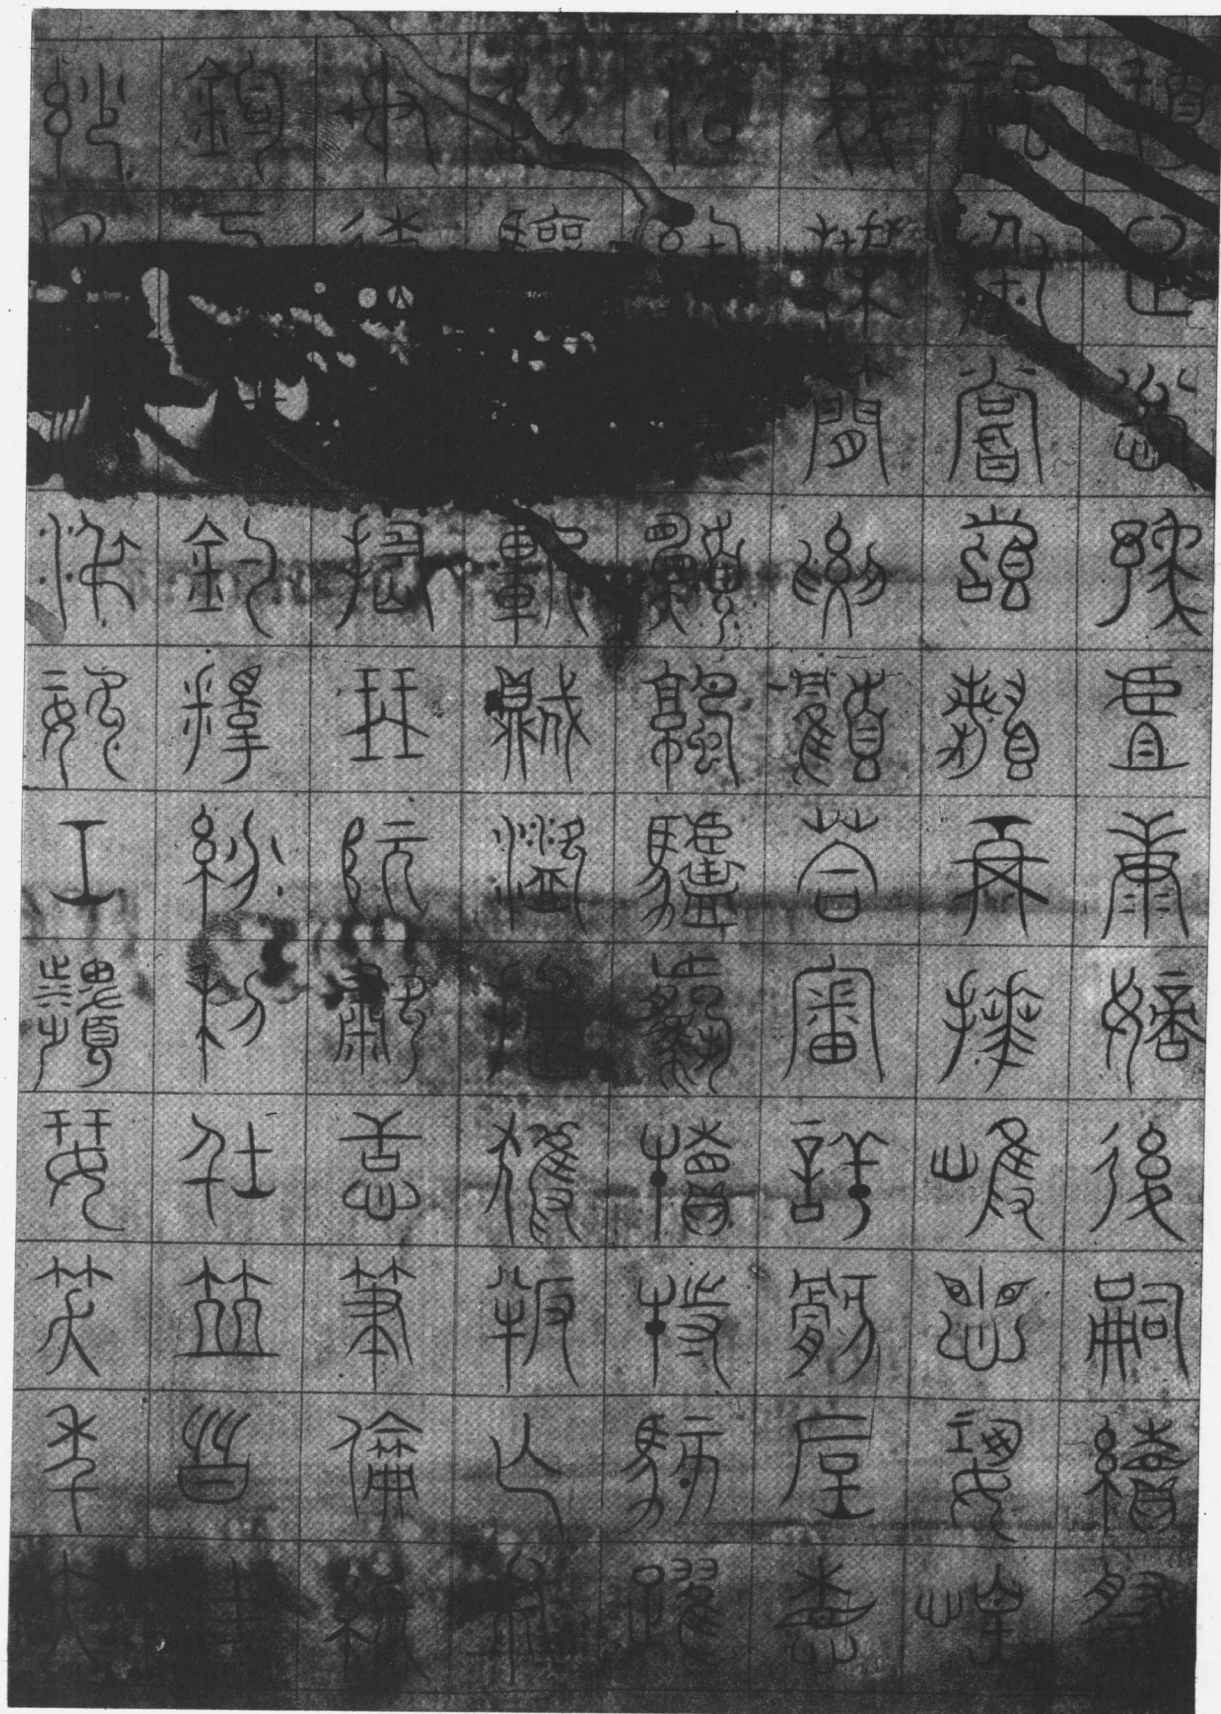 頓足悅豫且康嫡後嗣續祭
祀蒸嘗稽顙再拜悚懼恐惶
牋牒簡要顧答審詳骸垢想
浴執願涼驢騾犢特駭躍
超驤斬賊盜捕獲叛亡布
射嵇琴阮嘯恬筆倫紙
鈞巧釣釋紛利俗並皆佳
妙淑姿工顰妍笑年矢